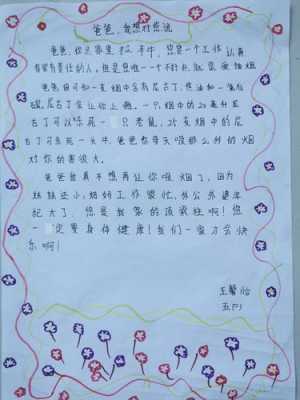 爸爸，我想对您说
爸爸，您是我家的顶梁柱，您是一个工作认真
有家有责任的人，但是您唯一一个不好的，就是爱抽烟
爸爸您可知一支烟中含有尼古丁、焦油和一氧化
碳，尼古丁会让你上瘾。一只烟中的20毫升尼
古丁可以杀死一只老鼠，25支烟中的尼
古丁可毒死一头牛，爸爸你每天吸那么多的烟
对你的害很大。
爸爸我真不想再让你吸烟了，因为
妹妹还小，妈妈工作繁忙，外公外婆年
纪大了，您是我家的顶梁柱啊！您
一定要身体健康！我们一家才会快
乐啊！
王馨怡
五（7）